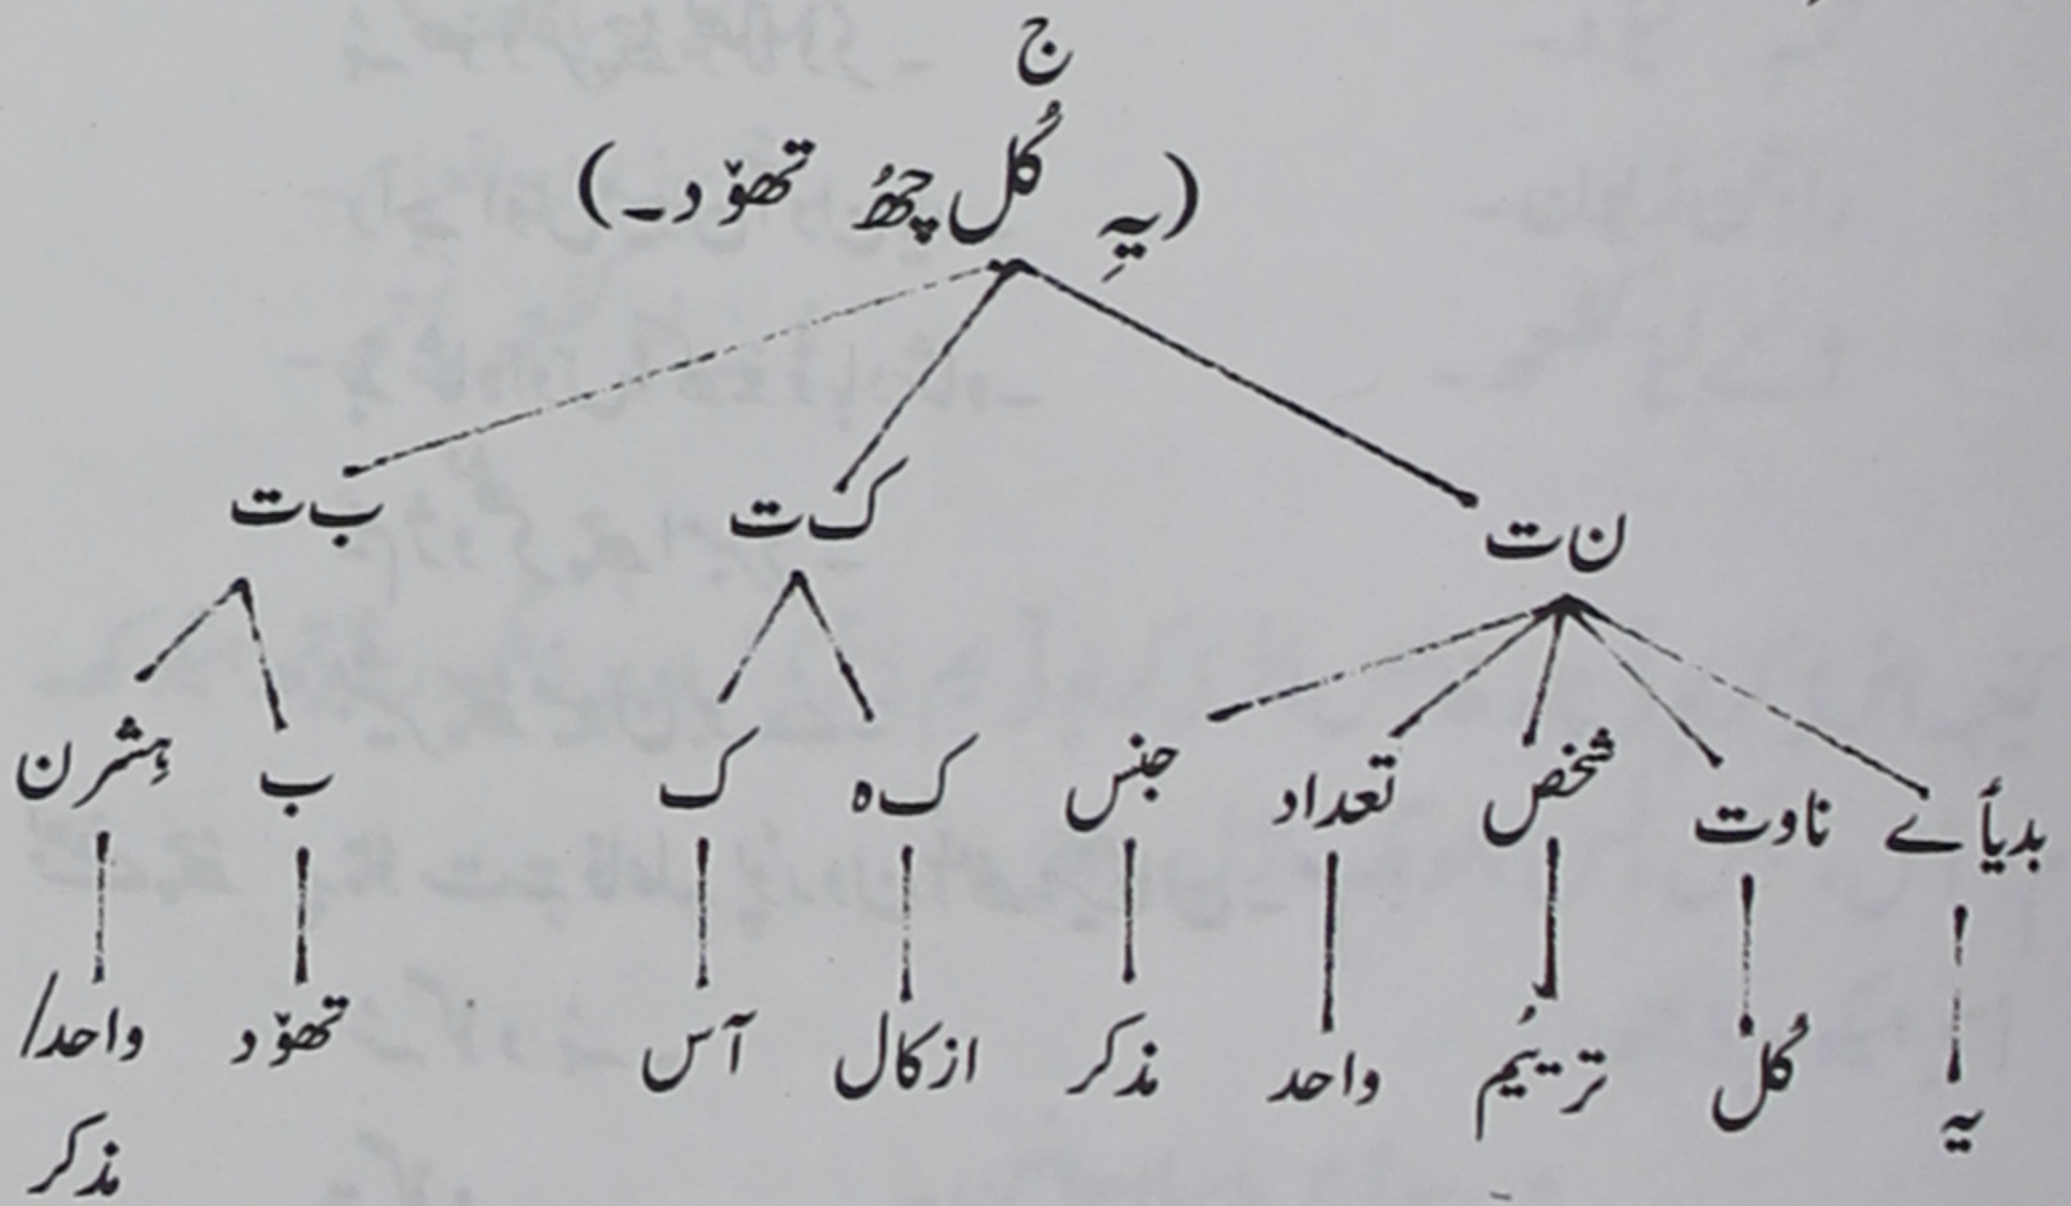 ج
(یہِ کُل چھُ تھوٚد۔)
ن ت ک ت ب ت
بدیأے ناوت شخص تعداد جنس ک ہ ک ب ہِشر ن
یہ کُل تریُٛم واحد مذکر ازکال آس تھوٚد واحد/
مذکر